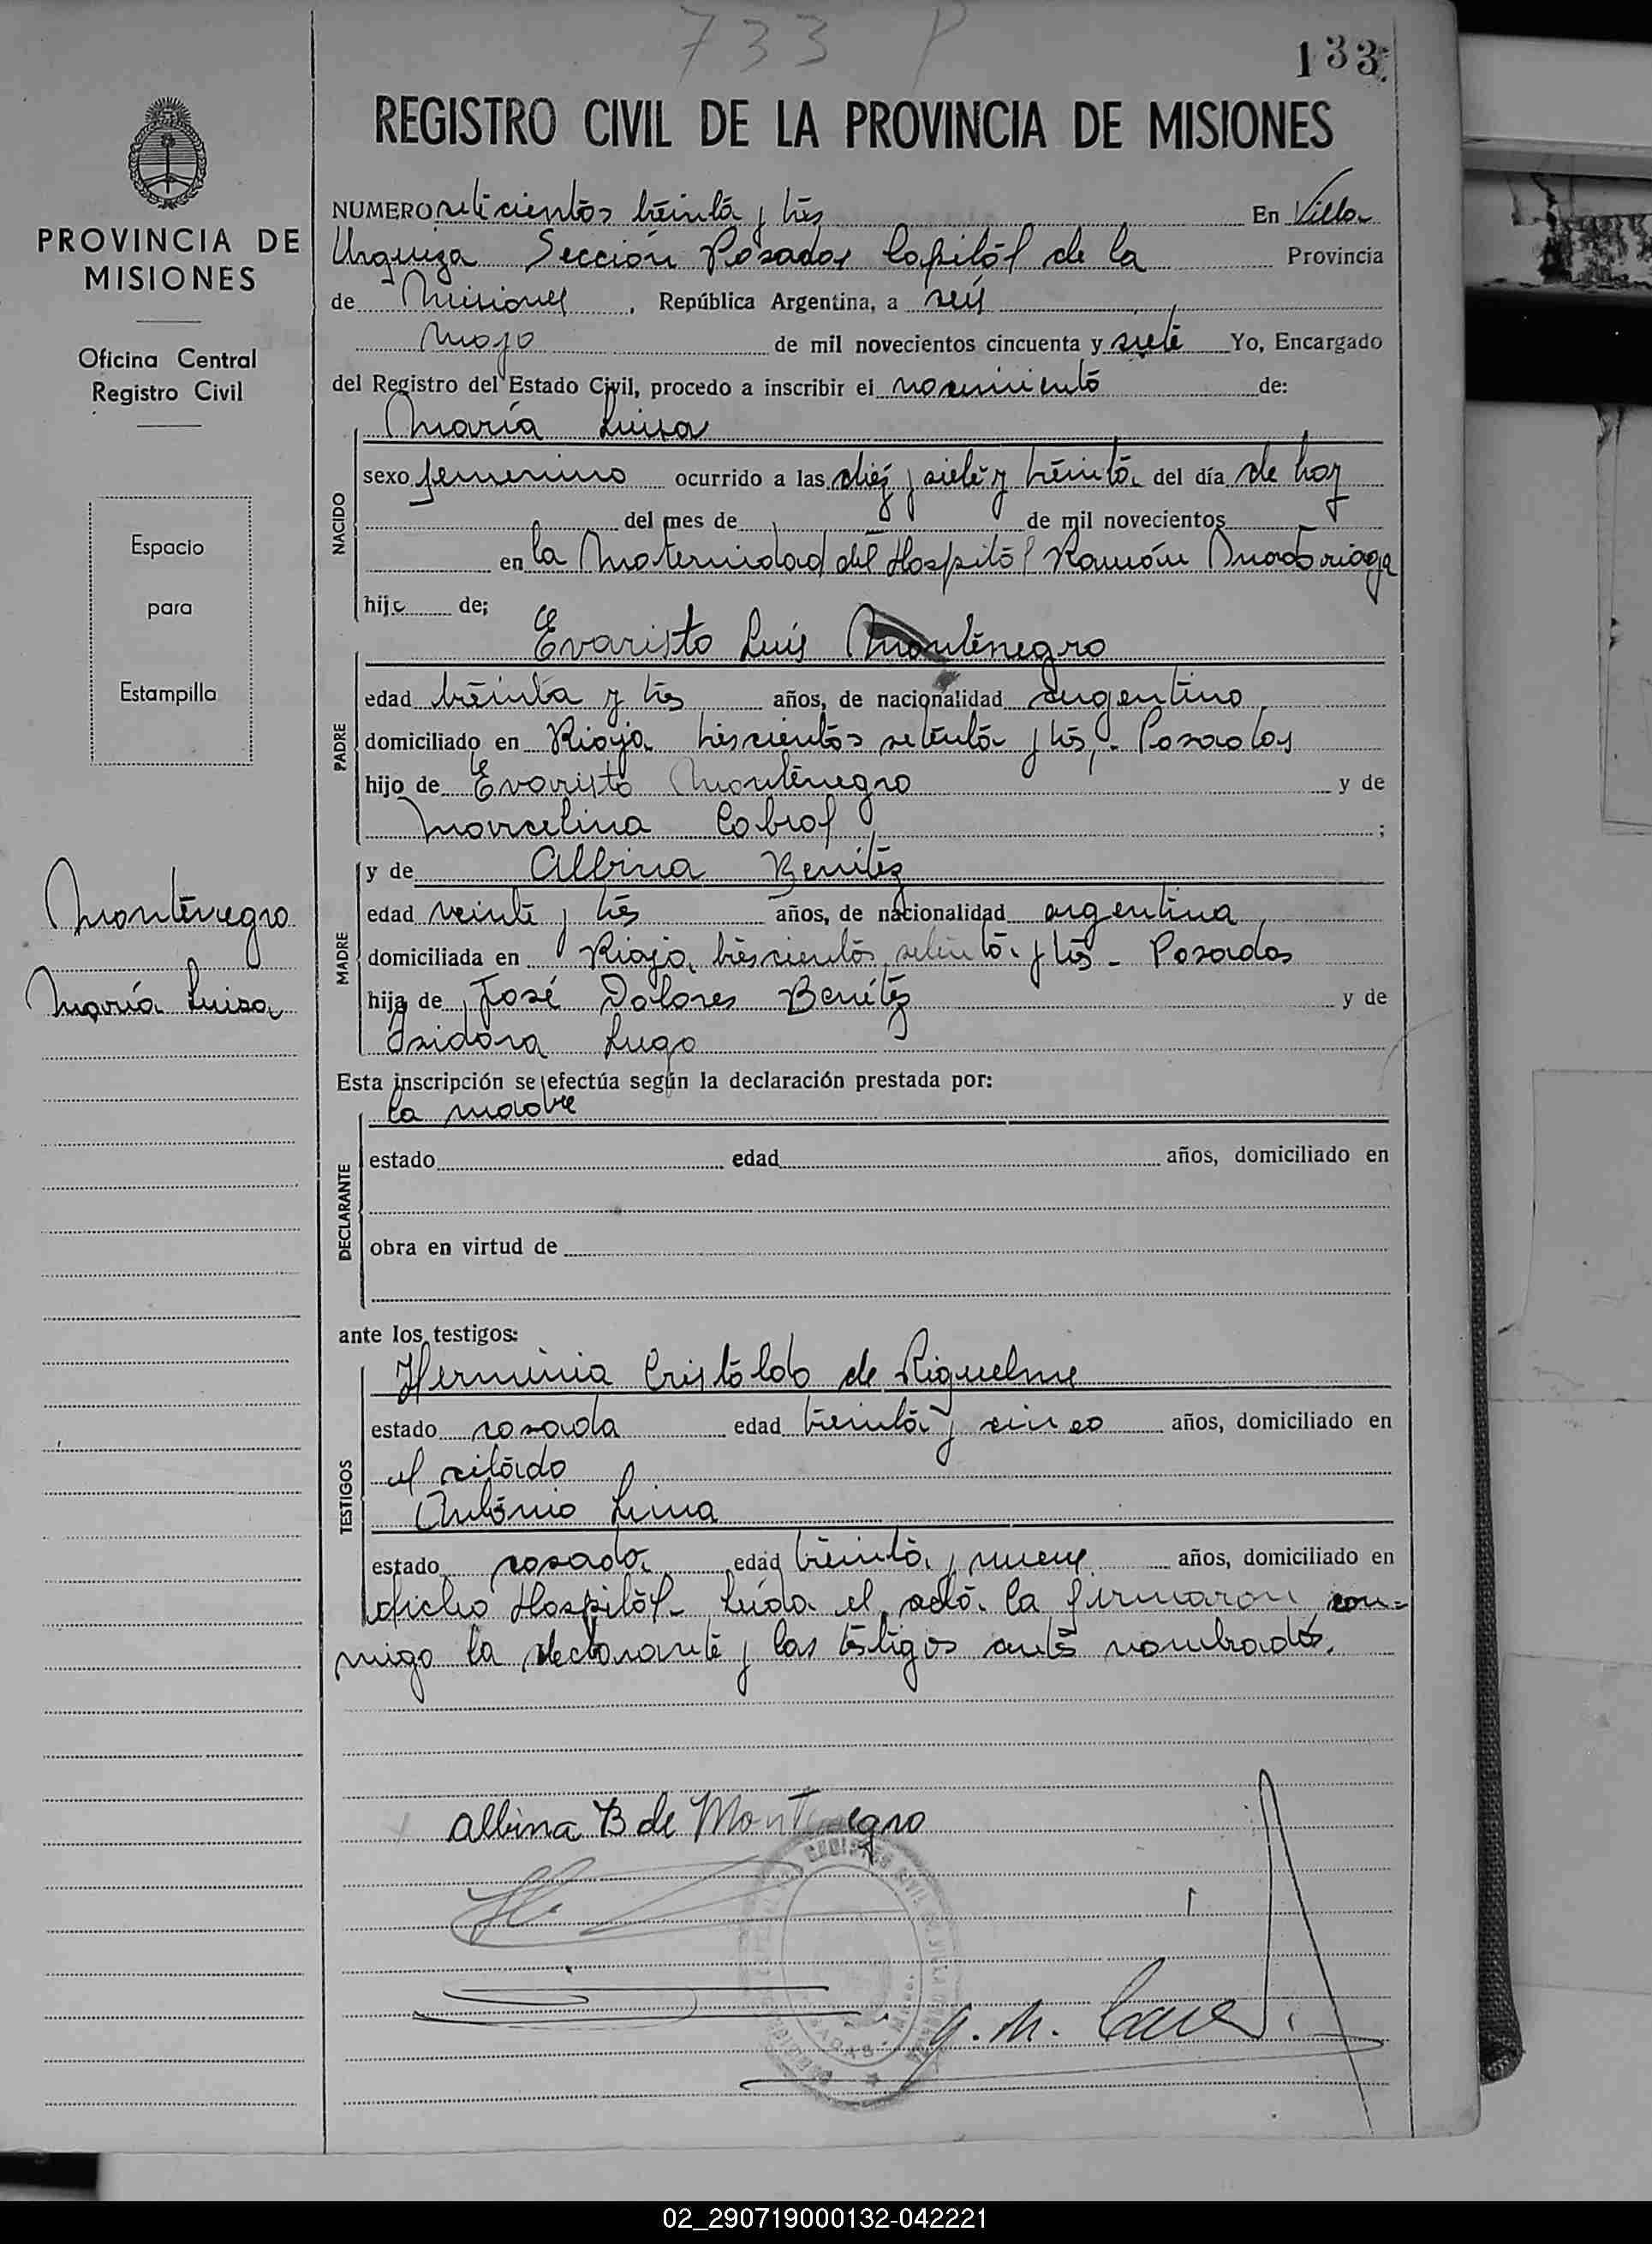 733 P
133
REGISTRO CIVIL DE LA PROVINCIA DE MISIONES
PROVINCIA DE
MISIONES
Oficina Central
Registro Civil
Espacio
para
Estampilla
Montenegro
María Luisa
NUMERO setecientos treinta y tres En Villa
Urquiza Sección Posadas Capital de la Provincia
de Misiones, República Argentina, a seis
Mayo de mil novecientos cincuenta y siete Yo, Encargado
del Registro del Estado Civil, procedo a inscribir el nacimiento de:
NACIDO
María Luisa
sexo femenino ocurrido a las diez y siete y treinta del día de hoy
del mes de de mil novecientos
en la Maternidad del Hospital Ramón Madariaga
hija de;
PADRE
Evaristo Luis Montenegro
edad treinta y tres años, de nacionalidad argentino
domiciliado en Rioja trescientos setenta y tres,- Posadas
hijo de Evaristo Montenegro y de
Marcelina Cabral ;
MADRE
y de Albina Benitez
edad veinte y tres años, de nacionalidad argentina
domiciliada en Rioja trescientos setenta y tres - Posadas
hija de José Dolores Benítez y de
Isidora Lugo
Esta inscripción se efectúa según la declaración prestada por:
DECLARANTE
la madre
estado edad años, domiciliado en
obra en virtud de
ante los testigos:
TESTIGOS
Herminia Cristaldo de Riquelme
estado casada edad treinta y cinco años, domiciliado en
el citado
Antonio Lima
estado casado edad treinta y nueve años, domiciliado en
dicho Hospital- Leída el acta la firmaron con=
migo la declarante y los testigos antes nombrados.
Albina B de Montenegro
02_290719000132-042221